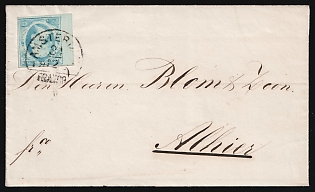 AMSTERD
FRANCO
Den Heeren Blom & Zoon.
fco
Alhier